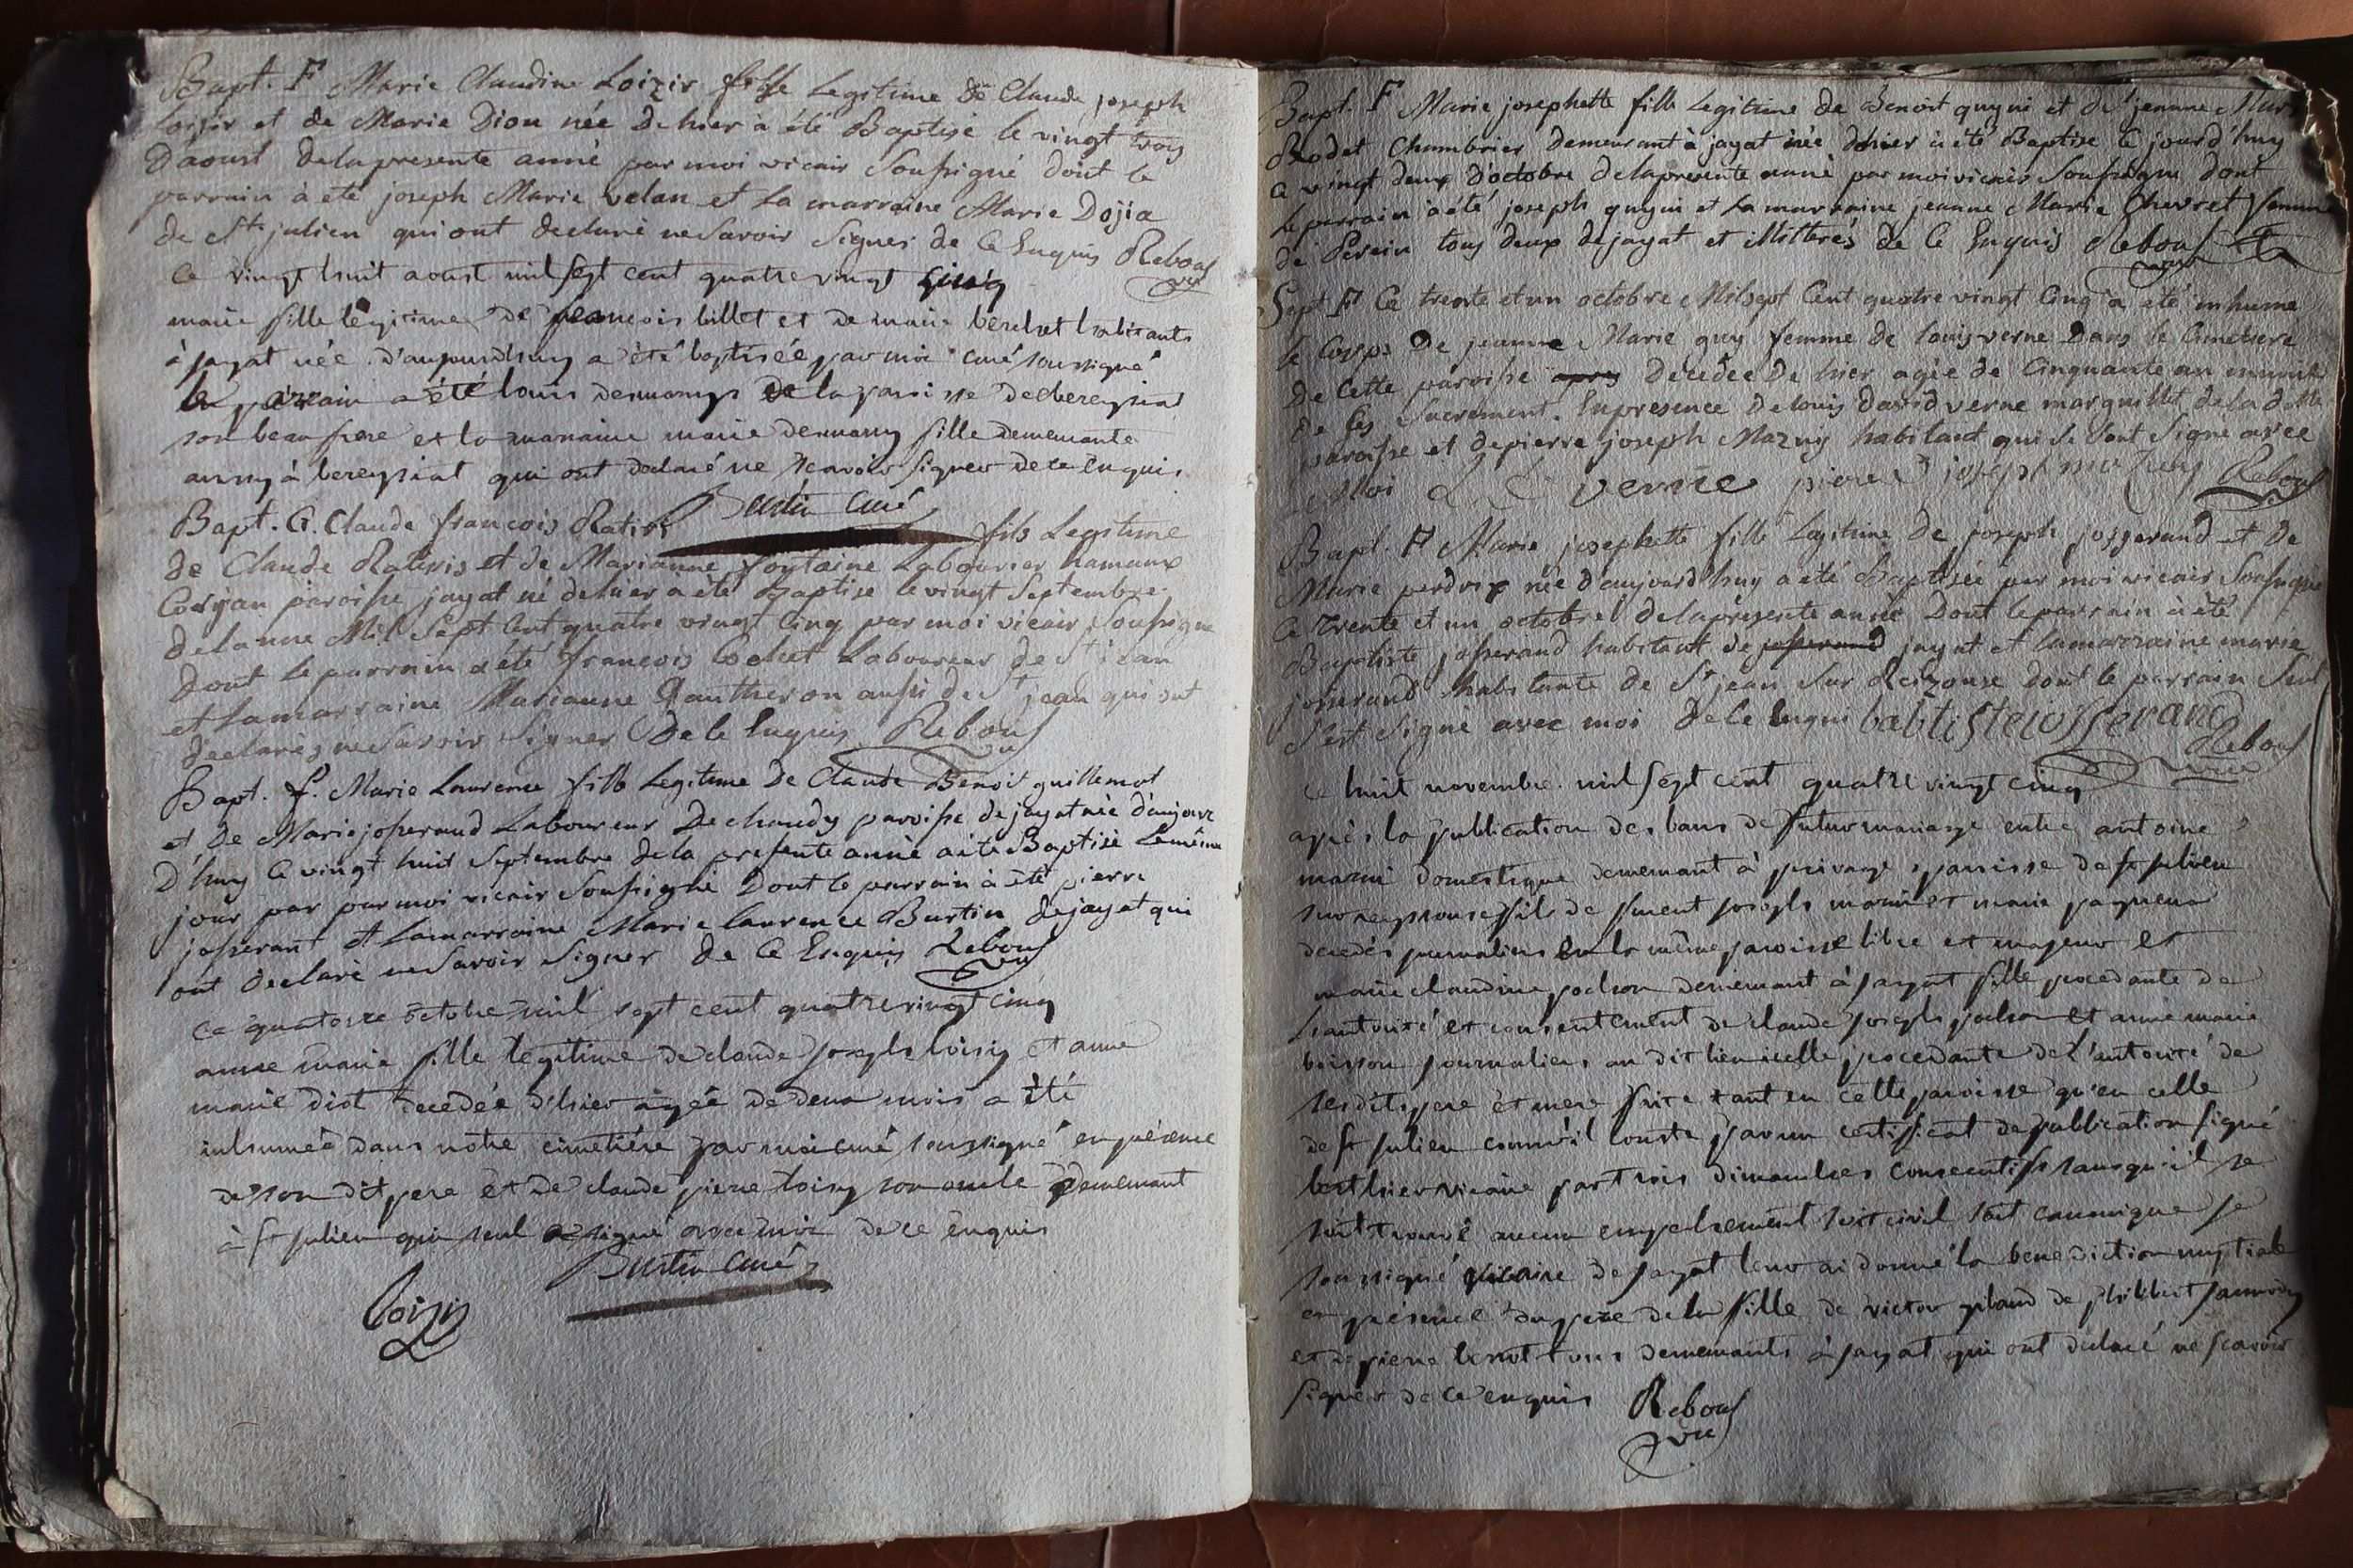 Bapt. F Marie Claudine Loizir fille Legitime de Claude joseph
Loizir et de Marie Diou née De hier à été Baptisé le vingt trois
D'aoust delapresente anné par moi vicair Soussigné dont le
parrain à eté joseph Marie velan et La marraine Marie Dojia
de St. julien qui ont declaré ne Savoir Signer de Ce Enquis Reboul
vic
Ce vingt huit aoust mil sept cent quatre vingt cinq
marie fille legitime de francois billet et de marie berchet habitants
à jayat née d'aujourd'huy a été baptisée par moi curé soussigné
le parrain a été louis demangs de la paroisse de bereysiat
son beaufrere et la maraine marie demang fille demeurante
aussy à bereysiat qui ont declaré ne scavoir signer de ce enquis
Burtin curé
Bapt. G. Claude françois Ratiris fils Legitime
de Claude Ratiris et de Marianne fontaine Labourier hamaux
Corjan paroisse jayat né dehier a été Baptise le vingt Septembre
delanne Mil Sept Cent quatre vingt Cinq par moi vicair Soussigne
dont le parrain a été françois Cochet Laboureur de St jean
et lamarraine Marianne Gautheron aussi de St jean qui ont
declarès ne Savoir Signer De Ce Enquis Reboul
vic
Bapt. f. Marie Laurence fille Legitime De Claude Benoit guillemot
et De Marie josserand Laboureur De chaudy paroisse de jayat née d'aujour
D'huy Ce vingt huit Septembre de la presente année a été Baptisé Lemême
jour par par moi vicair Soussigné Dont le parrain à été pierre
josserant et Lamarraine Marie laurence Burtin de jayat qui
ont declaré ne Savoir Signer De Ce Enquis Reboul
vic
Ce quatorze octobre mil sept cent quatre vingt cinq
anne marie fille legitime de claude joseph loisiy et anne
marie diot decedée d'hier agée de deux mois a été
inhumée dans notre cimetière par moi curé soussigné en présence
de son dit pere et de claude pierre loisy son oncle demeurant
à st julien qui seul a signé avec moi de ce enquis
Burtin curé
Loizis
Bapt. F Marie josephette fille Legitime de Benoit guyni et de jeanne Mar
Rodet Chambrier demeurant à jayat née dhier à été Baptise le jourd'huy
Ce vingt deux d'octobre delapresente anné par moi vicair Soussigne dont
le parrain à été joseph guyni et La marraine jeanne Marie Chevret femme
de Perrin tous deux de jayat et illitterés de Ce Enquis Reboul
vic
Sept F Ce trente et un octobre Mil Sept Cent quatre vingt Cinq a été inhumé
le Corps De jeanne Marie guy femme de louis verne Dans le Cimetiere
De Cette paroisse apres Decedée De hier agée de Cinquante an munit
De Ses Sacrement. En presence De louis david verne marguillet de la ditte
paroisse et de pierre joseph Mazuy habitant qui Se Sont Signe avec
Moi L D verne piere joseph mazuy Reboul
Bapt. F Marie josephette fille Legitime De joseph josserand et De
Marie perdrix née d'aujourd'huy a été Baptisée par moi vicair Soussigné
Ce Trente et un octobre delapresente année Dont le parrain à été
Baptiste josserand habitant de josserand jayat et lamarraine marie
josserand habitante de St jean Sur Reizouse dont le parrain Seul
S'est Signé avec moi De Ce Enqui babtiste iosserand
Reboul
vic
Ce huit novembre mil sept cent quatre vingt cinq
après la publication des bans de futur mariage entre antoine
marmi domestique demeurant à privage paroisse de st julien
sur reyssouse fils de fment joseph marmi et marie paquena
decedés journaliers en la même paroisse libre et majeur et
marie claudine pochon demeurant à jayat fille procedante de
l'autorité et consentement de claude joseph pochon et anne marie
boisson journaliers au dit lieu icelle procedante de l'autorité de
ses dits pere et mere faite tant en cette paroisse qu'en celle
de st julien comme il conste par un certificat de publication signé
berthier vicaire par trois dimanches consecutifs sans qu'il se
soit trouvé aucun empechement soit civil soit canonique je
soussigné vicaire de jayat leur ai donné la benediction nuptiale
en présence du pere de la fille de victor piland de philibert
et de pierre benot tous demeurants à jayat qui ont declaré ne scavoir
signer de ce enquis Reboul
vic